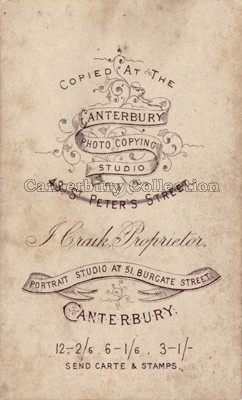 COPIED AT THE
CANTERBURY
PHOTO COPYING
STUDIO
ST PETER'S STREET
Canterbury Collection
Proprietor.
PORTRAIT STUDIO AT 51, BURGATE STREET
CANTERBURY.
12.-2/6 6-1/6 3-1/-
SEND CARTE & STAMPS.